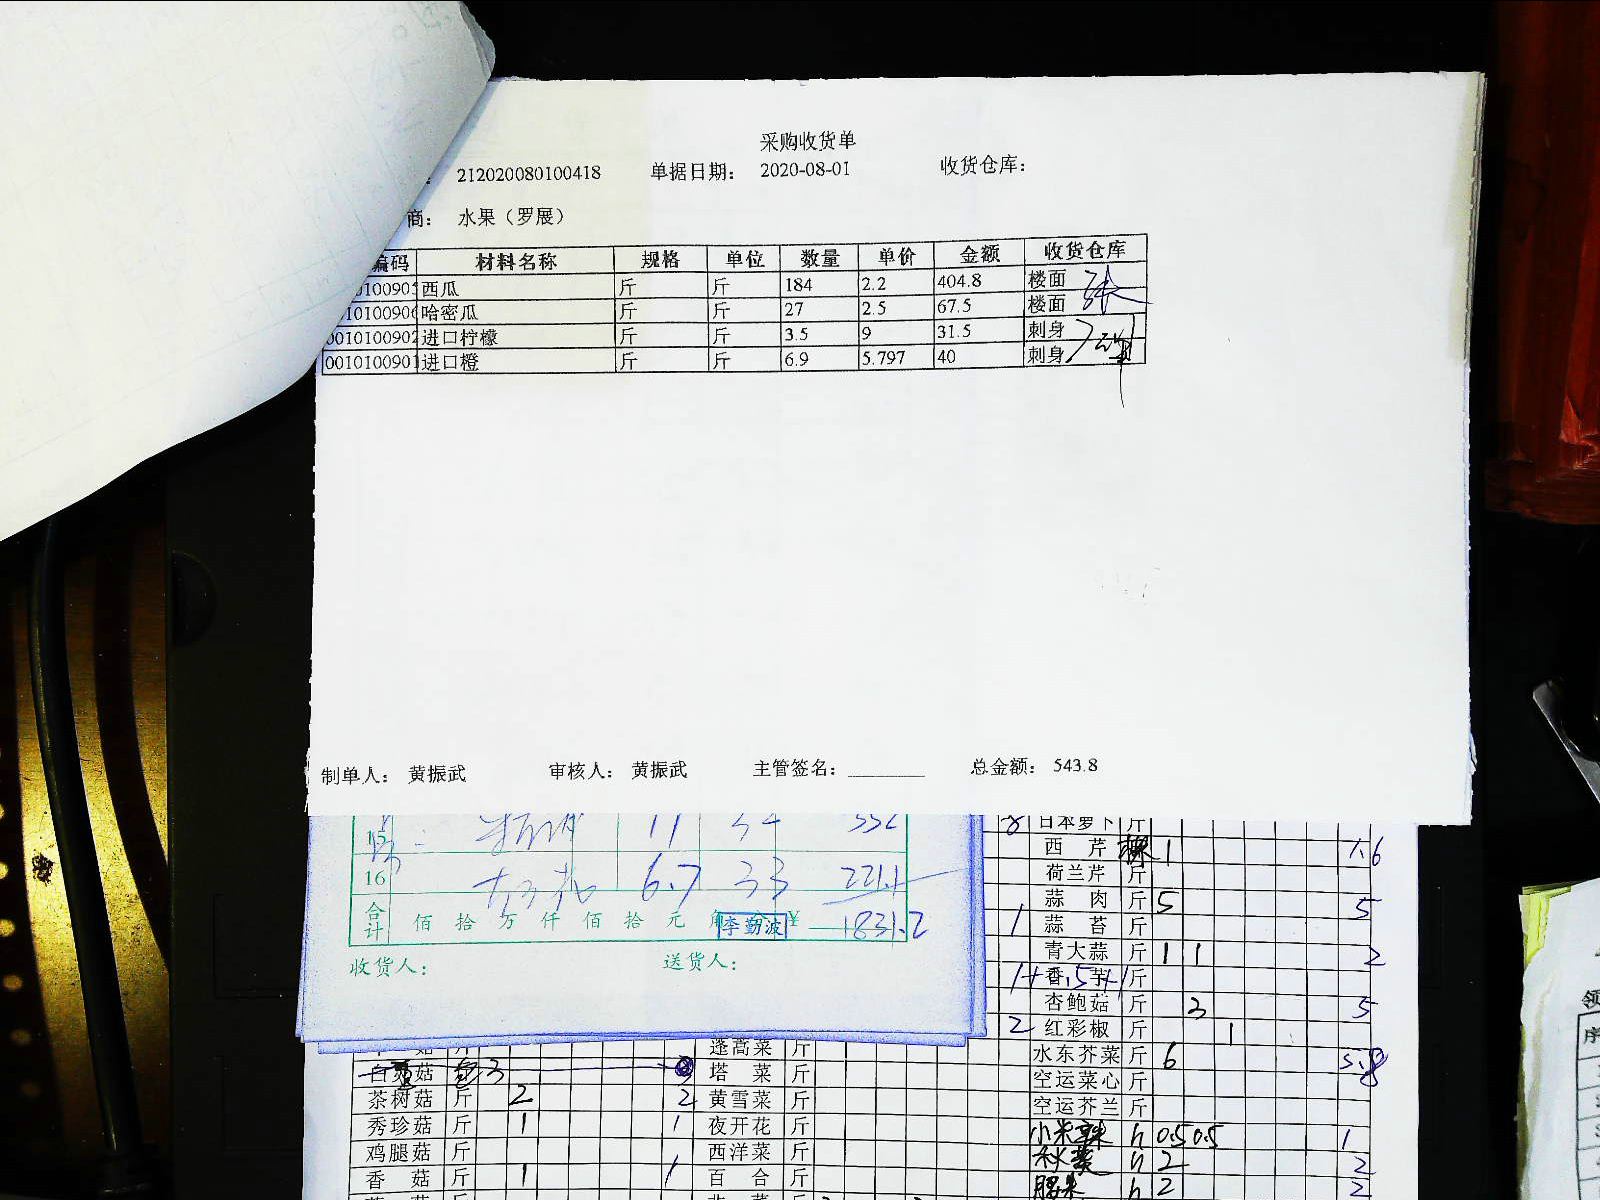 采购收货单
212020080100418 单据日期: 2020-08-01 收货仓库:
商: 水果（罗展）
编码 材料名称 规格 单位 数量 单价 金额 收货仓库
西瓜 斤 斤 184 2.2 404.8 楼面
哈密瓜 斤 斤 27 2.5 67.5 楼面
进口柠檬 斤 斤 3.5 9 31.5 刺身
0010100901 进口橙 斤 斤 6.9 5.797 40 刺身
制单人: 黄振武 审核人: 黄振武 主管签名: 总金额: 543.8
15
16 6.7 33 221.1
合计 佰 拾 万 仟 佰 拾 元 ¥ 1831.2
李勤波
收货人: 送货人:
日本萝卜 斤
西芹 1 1.6
荷兰芹 斤
蒜肉 斤 5 5
1 蒜苔 斤
青大蒜 斤 1 1 2
香芋 斤
杏鲍菇 斤 3 5
2 红彩椒 斤 1
蓬蒿菜 斤 水东芥菜 斤 6
白菇 3 塔菜 斤 空运菜心 斤
茶树菇 斤 2 2 黄雪菜 斤 空运芥兰 斤
秀珍菇 斤 1 1 夜开花 斤 小米辣 0.5 0.5 1
鸡腿菇 斤 西洋菜 斤 秋葵 2 2
香菇 斤 1 1 百合 斤 腰果 2 2
领
序